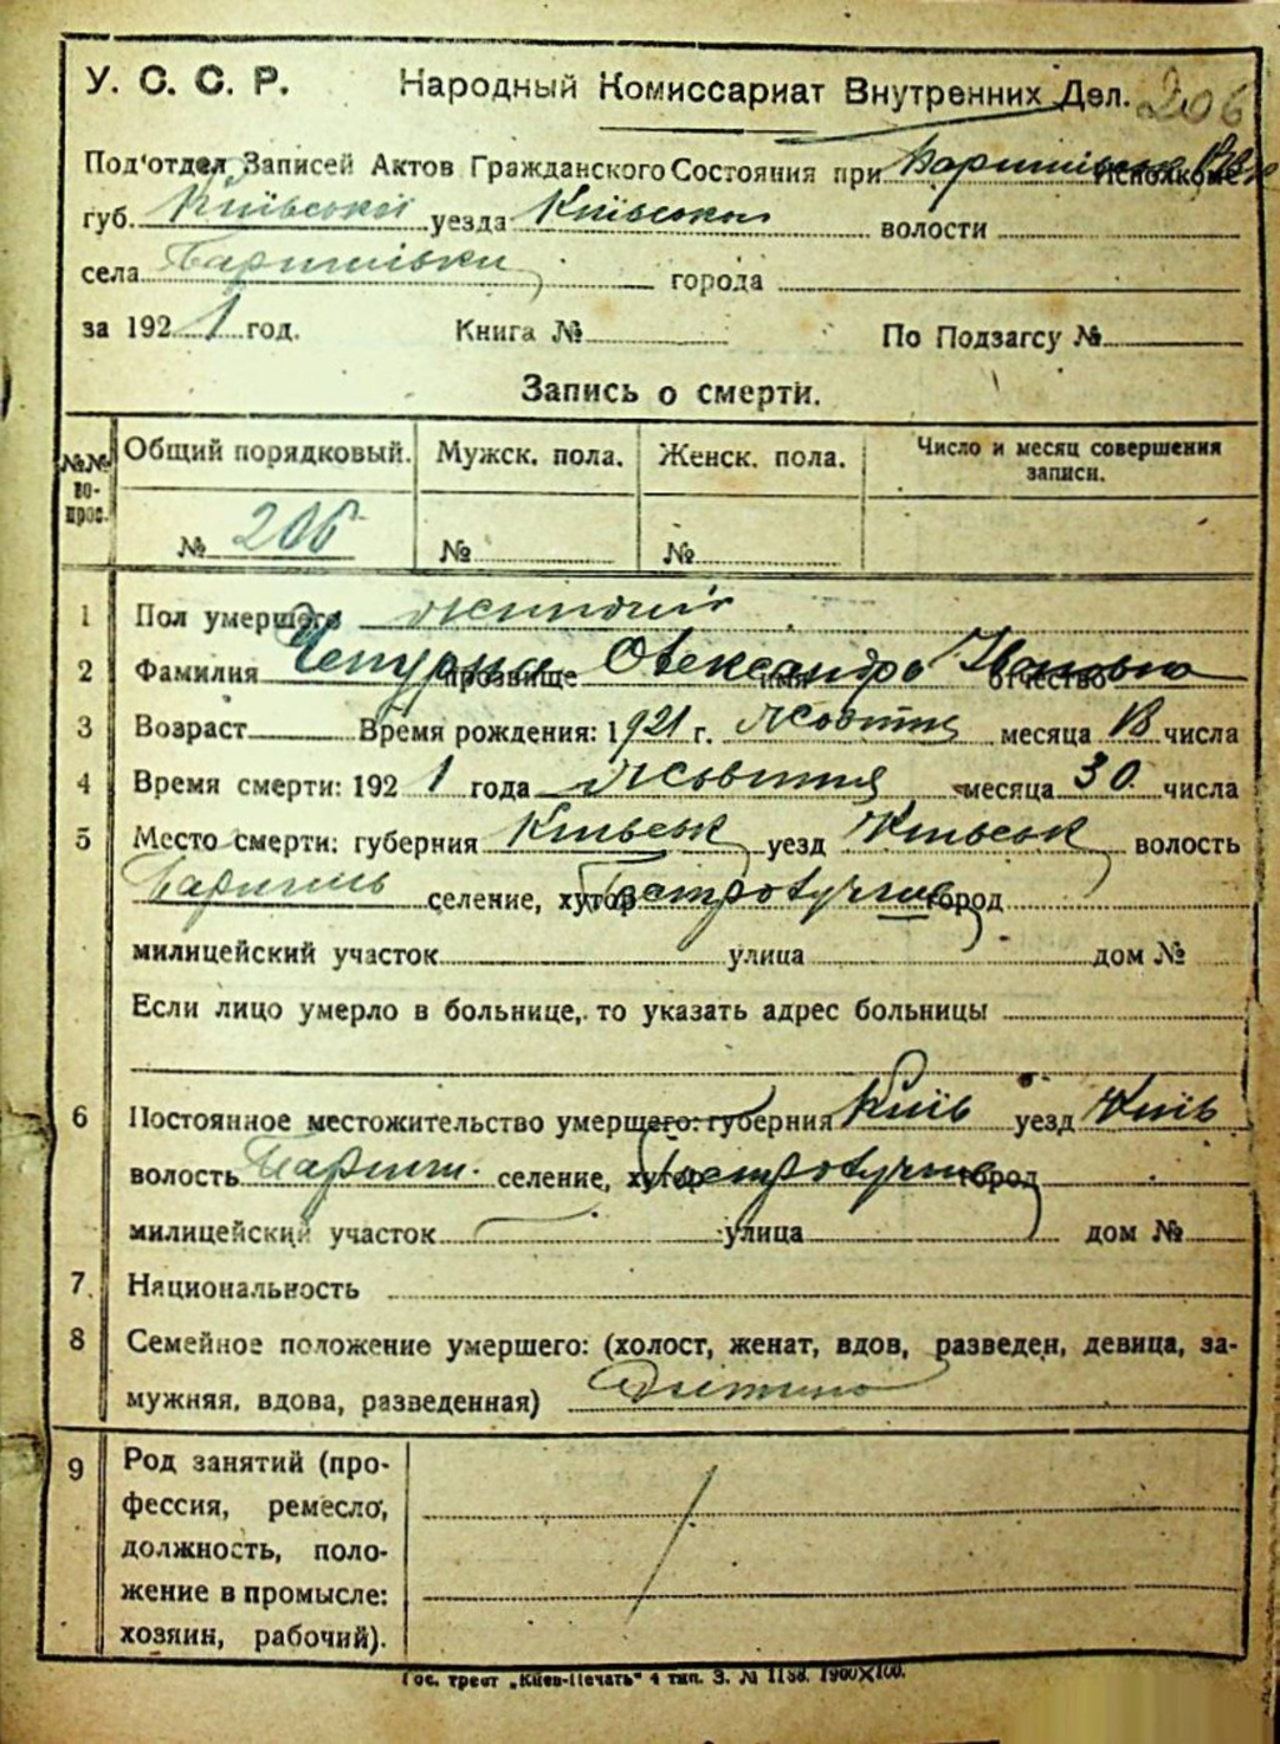 У. С. С. Р. Народный Комиссариат Внутренних Дел. 206
Под'отдел Записей Актов Гражданского Состояния при Исполкоме
губ. Київської уезда Київськой волости
села Баришівки города
за 1921 год. Книга № По Подзагсу №
Запись о смерти.
№№ во-прос. Общий порядковый. Мужск. пола. Женск. пола. Число и месяц совершения записи.
№ 206 № №
1 Пол умершего жіночий
2 Фамилия Чепурна прозвище Олександра имя Івановна отчество
3 Возраст Время рождения: 1921 г. Жовтня месяца 18 числа
4 Время смерти: 1921 года Жовтня месяца 30 числа
5 Место смерти: губерния Київськ уезд Київськ волость
Баришів селение, хутор город
милицейский участок улица дом №
Если лицо умерло в больнице, то указать адрес больницы
6 Постоянное местожительство умершего: губерния Київ уезд Київ
волость Бариш. селение, хутор город
милицейский участок улица дом №
7. Национальность
8 Семейное положение умершего: (холост, женат, вдов, разведен, девица, за-
мужняя, вдова, разведенная) Дитина
9 Род занятий (про-
фессия, ремесло,
должность, поло-
жение в промысле:
хозяин, рабочий).
Гос. трест „Киев-Печать" 4 тип. З. № 1188. 1900X100.